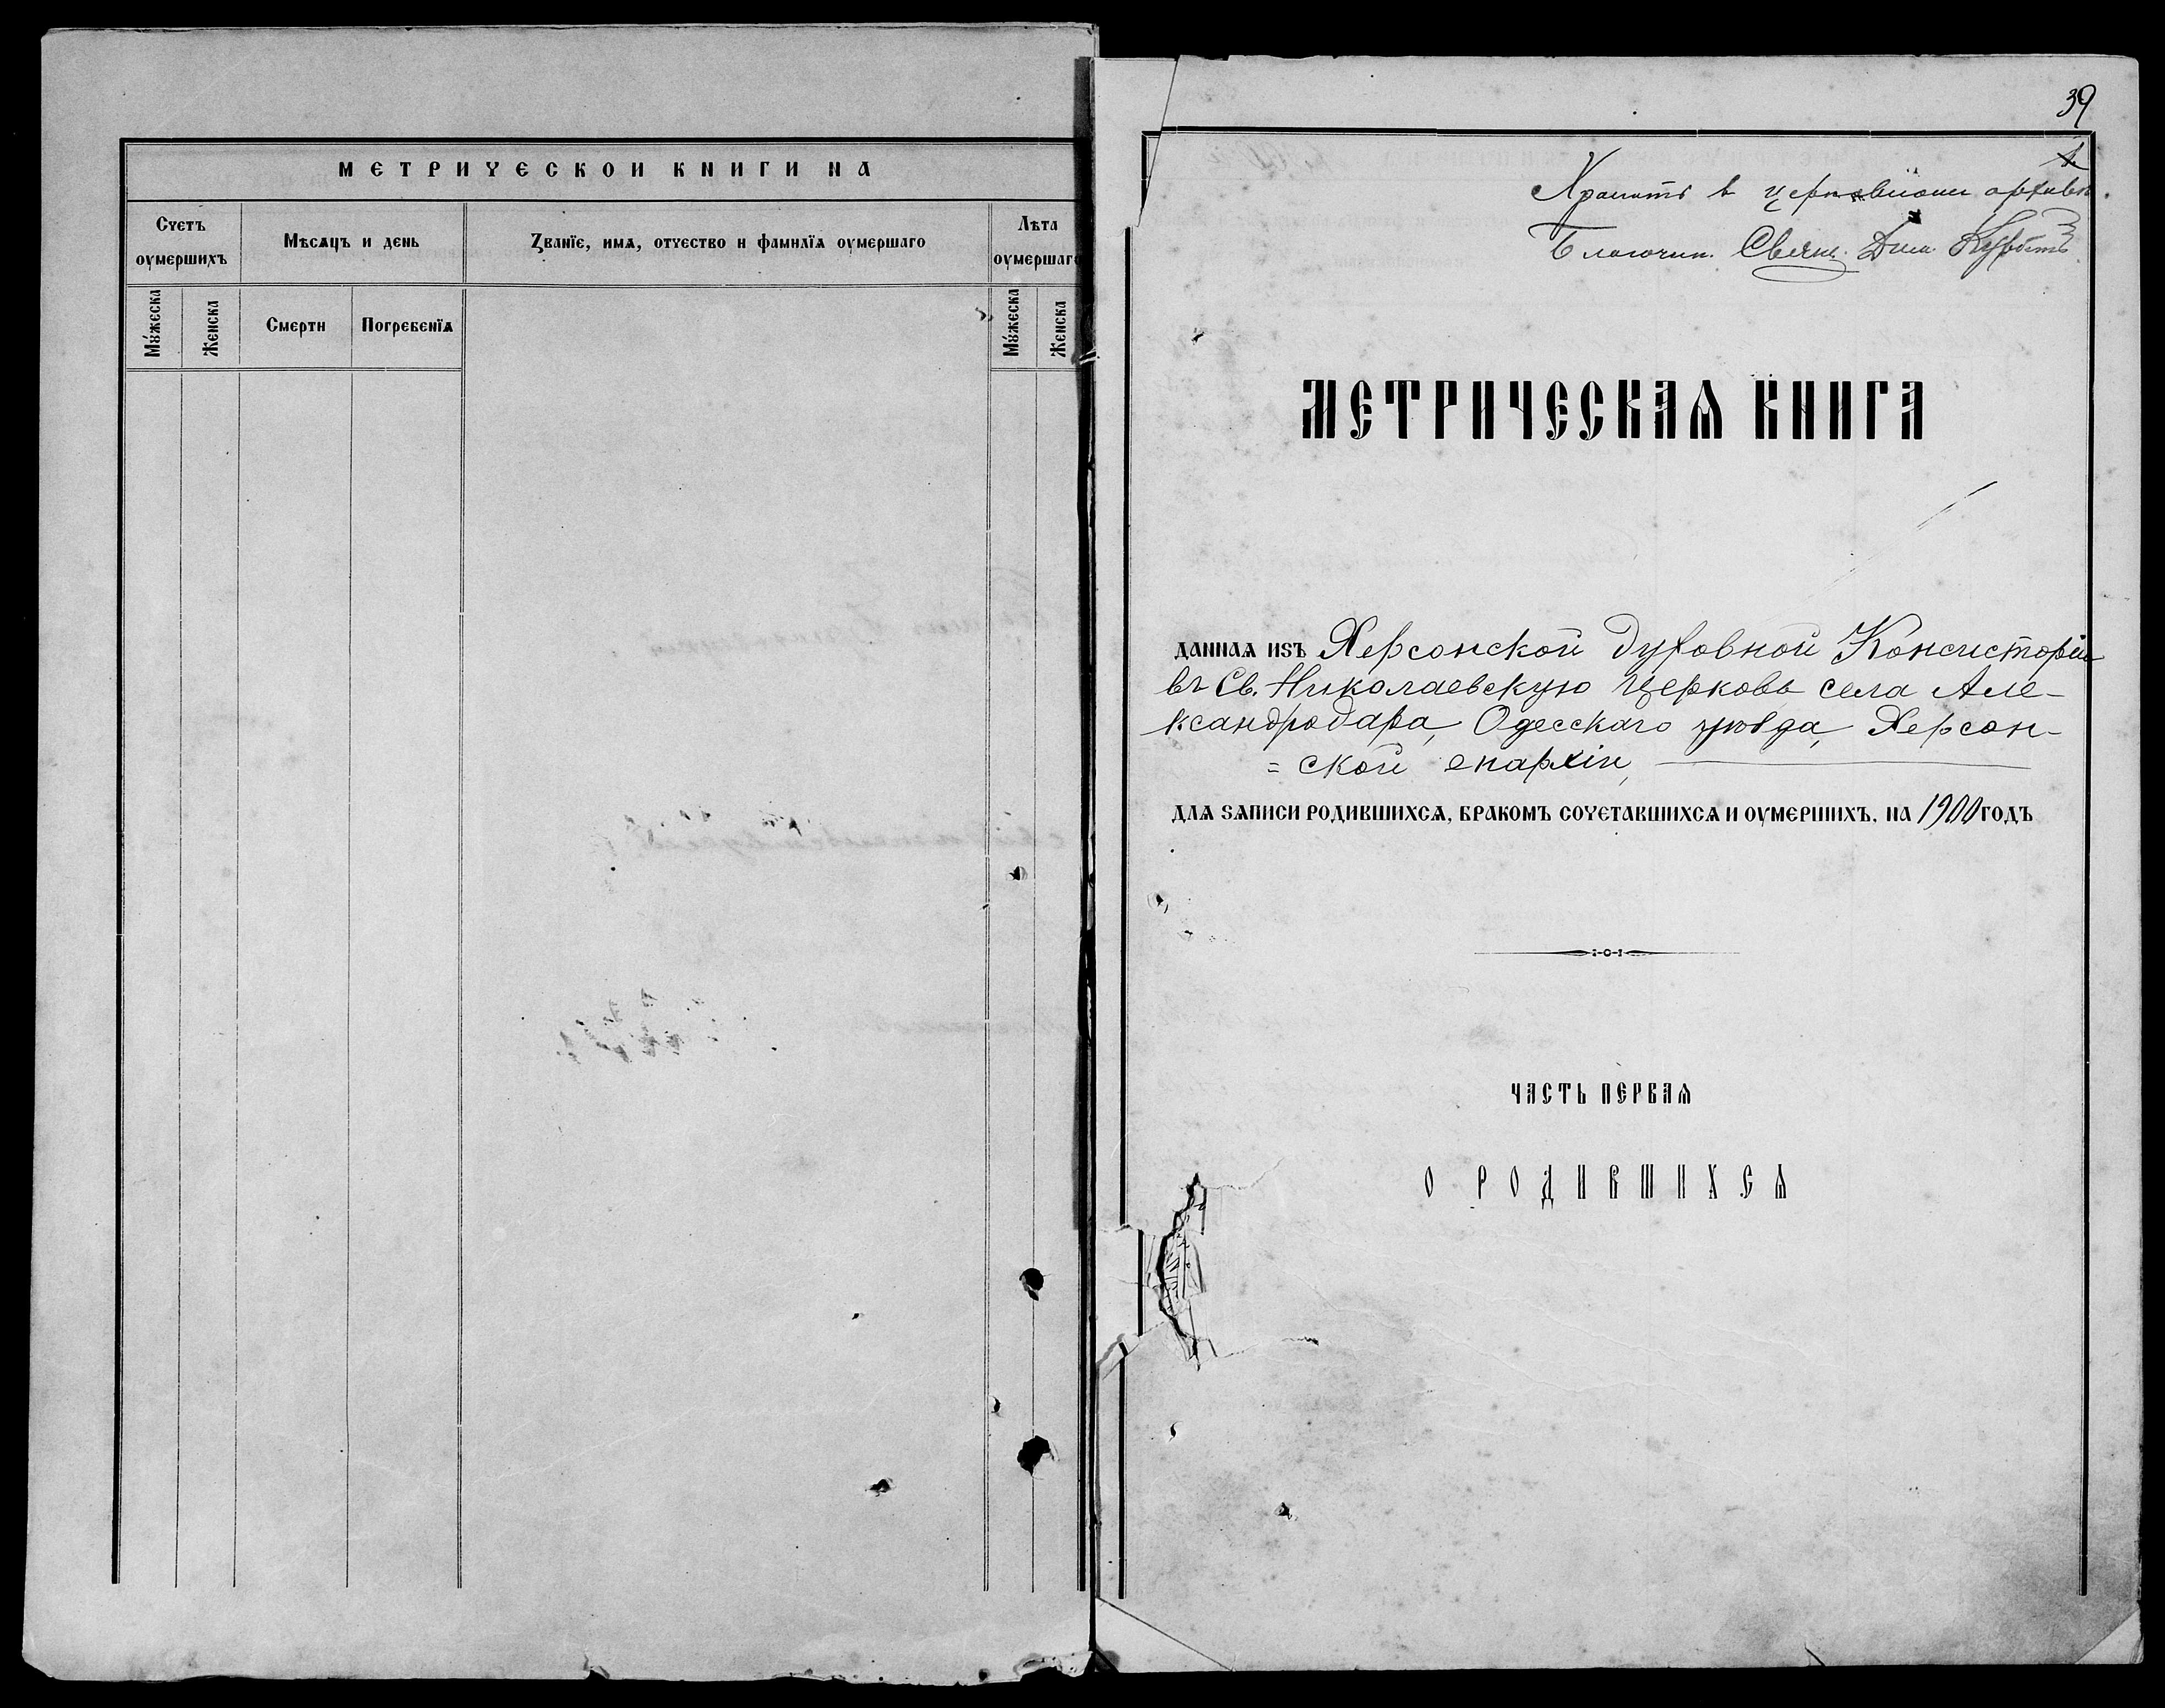 МЕТРИЧЕСКОИ КНИГИ НА
Счетъ оумершихъ
Мѣсѧцъ и день
Званїе, имѧ, отчество и фамилїѧ оумершаго
Лѣта оумершаго
Мꙋжеска
Женска
Смерти
Погребенїѧ
Мꙋжеска
Женска
39
1.
Хранить в церковном архивѣ.
Благочин. Свящ.
МЕТРИЧЕСКАѦ КНИГА
даннаѧ изъ Херсонской Духовной Консисторіи
въ Св. Николаевскую церковь села Але-
ксандродара, Одесскаго уѣзда, Херсон-
=ской епархіи,
длѧ записи родившихсѧ, бракомъ сочетавшихсѧ и оумершихъ, на 1900 годъ
ЧАСТЬ ПЕРВАѦ
О РОДИВШИХСѦ